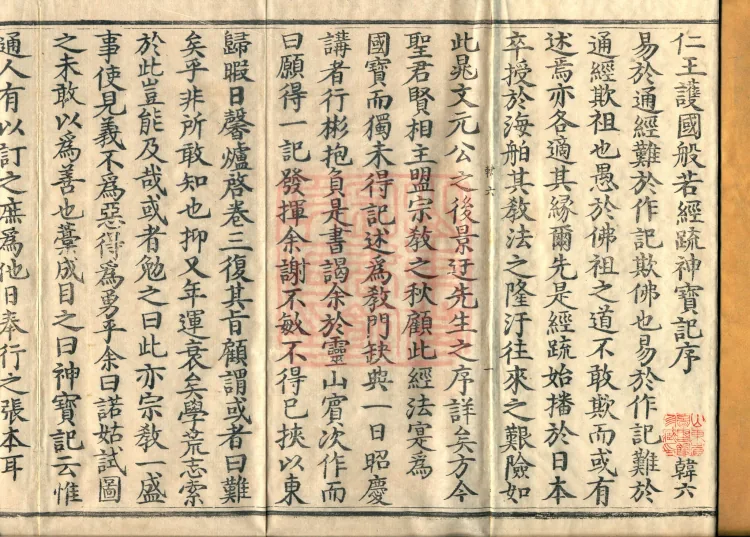 仁王護國般若經䟽神寶記序
韓六
易於通經難於作記欺佛也易於作記難於
通經欺祖也愚於佛祖之道不敢欺而或有
述焉亦各適其緣爾先是經䟽始播於日本
卒授於海舶其教法之隆汙往來之艱險如
韓六
此晁文元公之後景迂先生之序詳矣方今
聖君賢相主盟宗教之秋顧此經法寔為
國寶而獨未得記述為教門缺典一日昭慶
講者行彬抱負是書謁余於靈山賓次作而
曰願得一記發揮余謝不敏不得已挾以東
歸暇日馨爐啓卷三復其旨顧謂或者曰難
矣乎非所敢知也抑又年運衰矣學荒志索
於此豈能及哉或者勉之曰此亦宗教一盛
事使見義不為惡得為勇乎余曰諾姑試圖
之未敢以為善也藁成目之曰神寶記云惟
通人有以訂之庶為他日奉行之張本耳